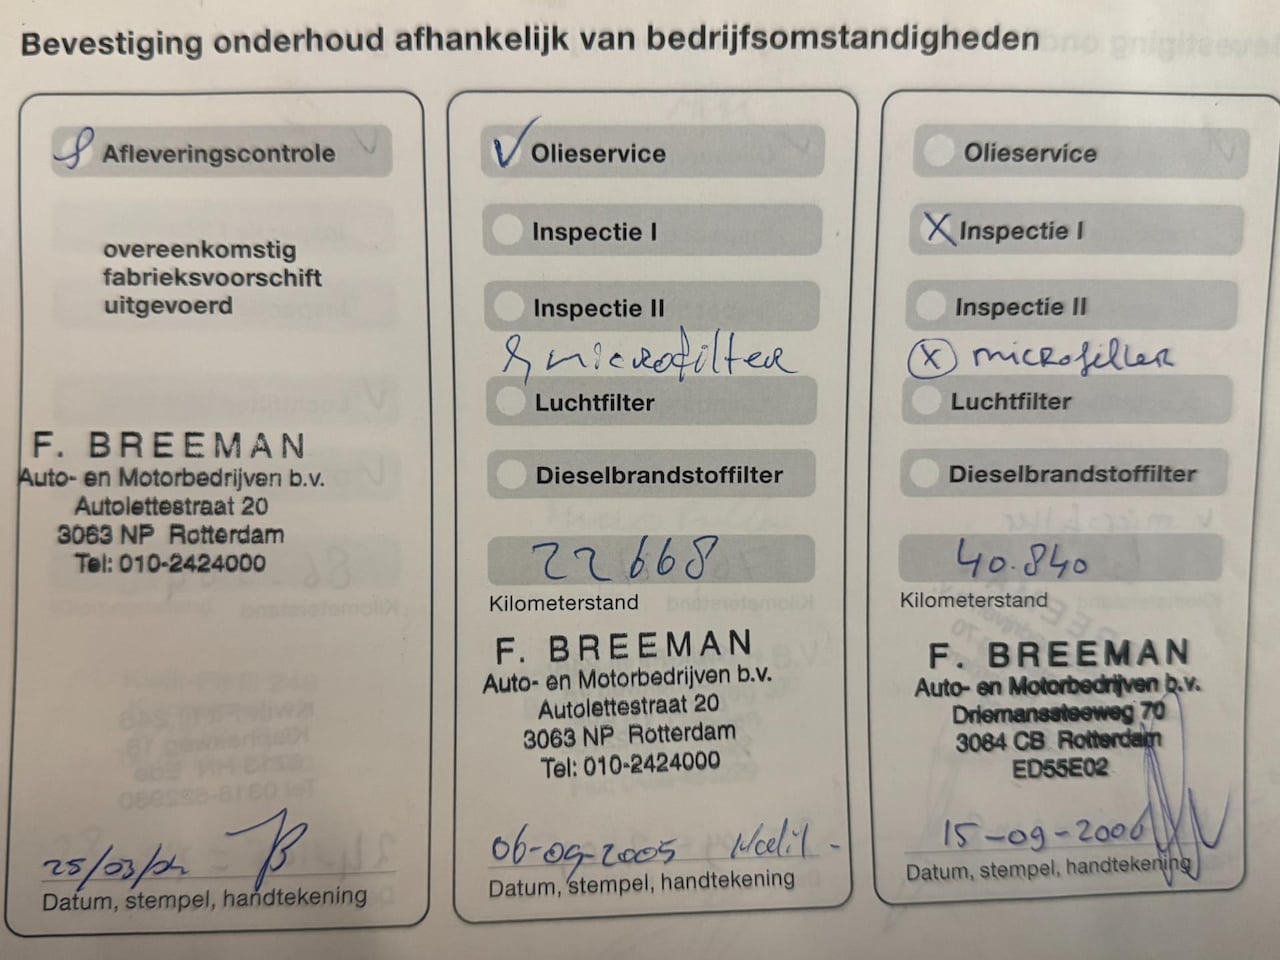 Bevestiging onderhoud afhankelijk van bedrijfsomstandigheden
Afleveringscontrole
overeenkomstig
fabrieksvoorschift
uitgevoerd
F. BREEMAN
Auto- en Motorbedrijven b.v.
Autolettestraat 20
3063 NP Rotterdam
Tel: 010-2424000
25/03/04
Datum, stempel, handtekening
Olieservice
Inspectie I
Inspectie II
& microfilter
Luchtfilter
Dieselbrandstoffilter
22668
Kilometerstand
F. BREEMAN
Auto- en Motorbedrijven b.v.
Autolettestraat 20
3063 NP Rotterdam
Tel: 010-2424000
06-09-2005
Datum, stempel, handtekening
Olieservice
X Inspectie I
Inspectie II
X microfilter
Luchtfilter
Dieselbrandstoffilter
40.840
Kilometerstand
F. BREEMAN
Auto- en Motorbedrijven b.v.
Driemanssteeweg 70
3084 CB Rotterdam
ED55E02
15-09-2006
Datum, stempel, handtekening